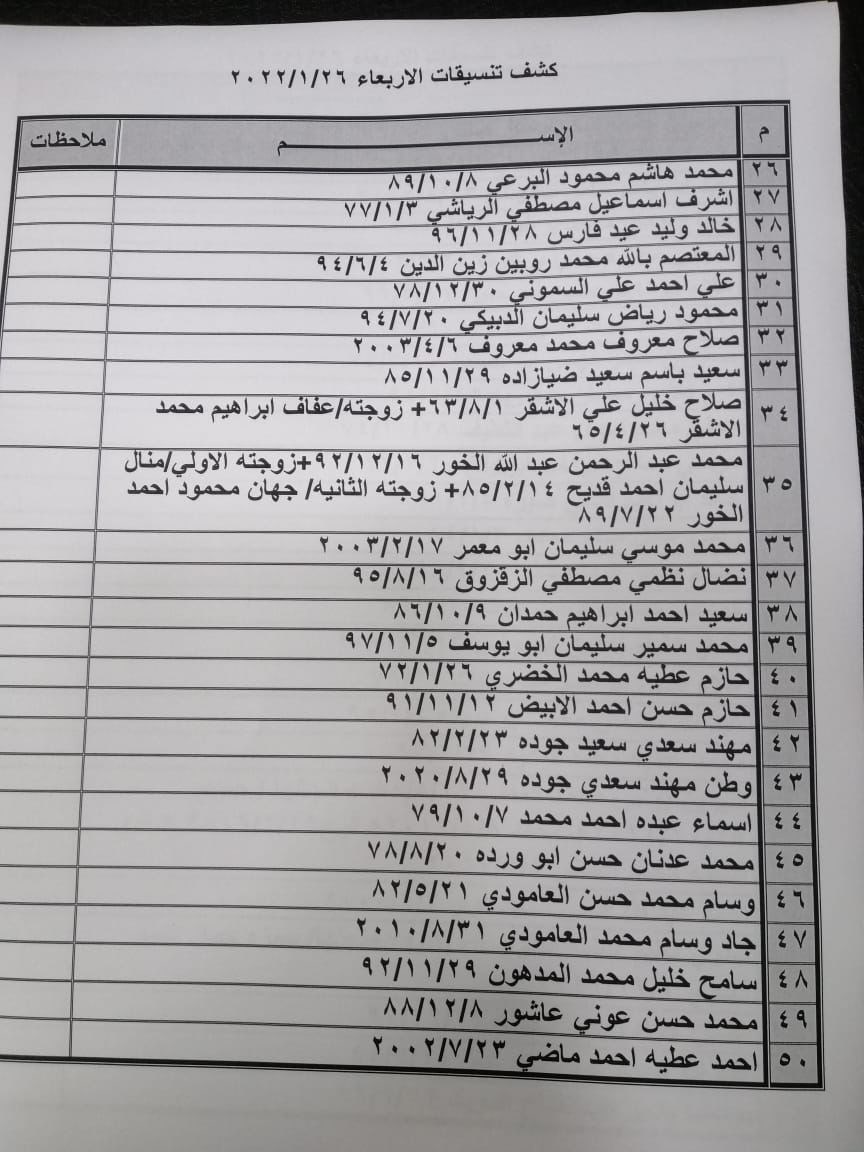 كشف تنسيقات الاربعاء ٢٠٢٢/١/٢٦
م الإســـــــــم ملاحظات
٢٦ محمد هاشم محمود البرعي ٨٩/١٠/٨
٢٧ اشرف اسماعيل مصطفي الرياشي ٧٧/١/٣
٢٨ خالد وليد عيد فارس ٩٦/١١/٢٨
٢٩ المعتصم بالله محمد روبين زين الدين ٩٤/٦/٤
٣٠ علي احمد علي السموني ٧٨/١٢/٣٠
٣١ محمود رياض سليمان الدبيكي ٩٤/٧/٢٠
٣٢ صلاح معروف محمد معروف ٢٠٠٣/٤/٦
٣٣ سعيد باسم سعيد ضيازاده ٨٥/١١/٢٩
٣٤ صلاح خليل علي الاشقر ٦٣/٨/١+ زوجته/عفاف ابراهيم محمد
الاشقر ٦٥/٤/٢٦
٣٥ محمد عبد الرحمن عبد الله الخور ٩٢/١٢/١٦+زوجته الاولي/منال
سليمان احمد قديح ٨٥/٢/١٤+ زوجته الثانيه/ جهان محمود احمد
الخور ٨٩/٧/٢٢
٣٦ محمد موسي سليمان ابو معمر ٢٠٠٣/٢/١٧
٣٧ نضال نظمي مصطفي الزقزوق ٩٥/٨/١٦
٣٨ سعيد احمد ابراهيم حمدان ٨٦/١٠/٩
٣٩ محمد سمير سليمان ابو يوسف ٩٧/١١/٥
٤٠ حازم عطيه محمد الخضري ٧٢/١/٢٦
٤١ حازم حسن احمد الابيض ٩١/١١/١٢
٤٢ مهند سعدي سعيد جوده ٨٢/٢/٢٣
٤٣ وطن مهند سعدي جوده ٢٠٢٠/٨/٢٩
٤٤ اسماء عبده احمد محمد ٧٩/١٠/٧
٤٥ محمد عدنان حسن ابو ورده ٧٨/٨/٢٠
٤٦ وسام محمد حسن العامودي ٨٢/٥/٢١
٤٧ جاد وسام محمد العامودي ٢٠١٠/٨/٣١
٤٨ سامح خليل محمد المدهون ٩٢/١١/٢٩
٤٩ محمد حسن عوني عاشور ٨٨/١٢/٨
٥٠ احمد عطيه احمد ماضي ٢٠٠٢/٧/٢٣